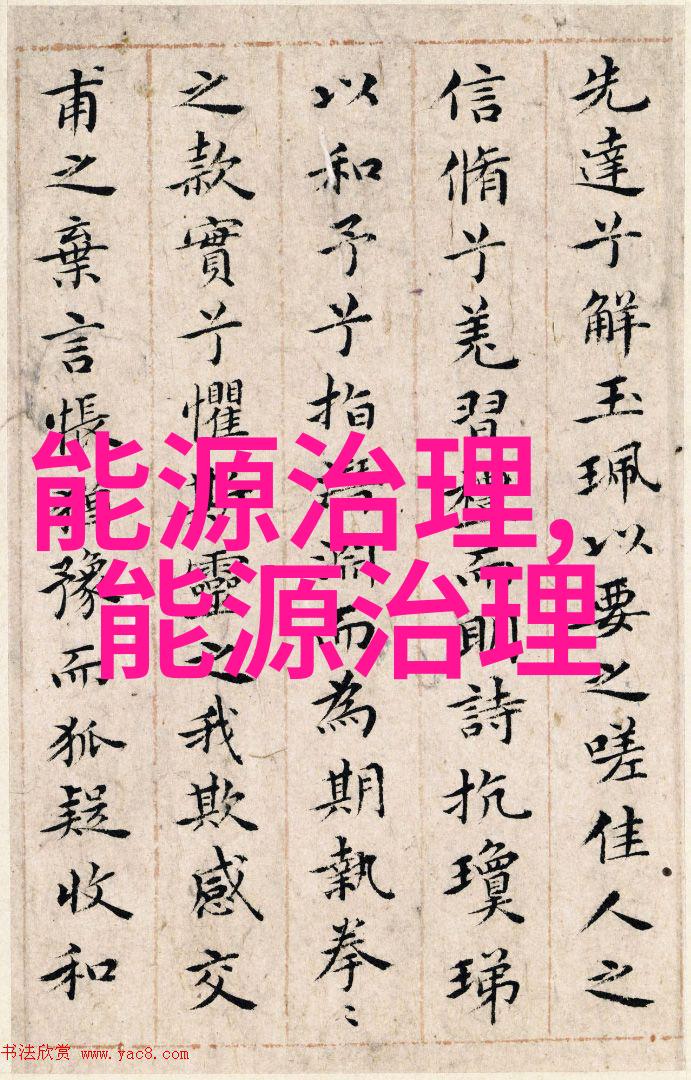 先達兮解玉珮以要之嗟佳人之
信脩兮羌習禮而眀詩抗瓊珶
以和予兮指潛淵而為期執拳〻
之款實兮懼斯靈之我欺感交
甫之棄言悵猶豫而狐疑收和
能源治理,
能源治理
书法欣赏 www.yac8.com